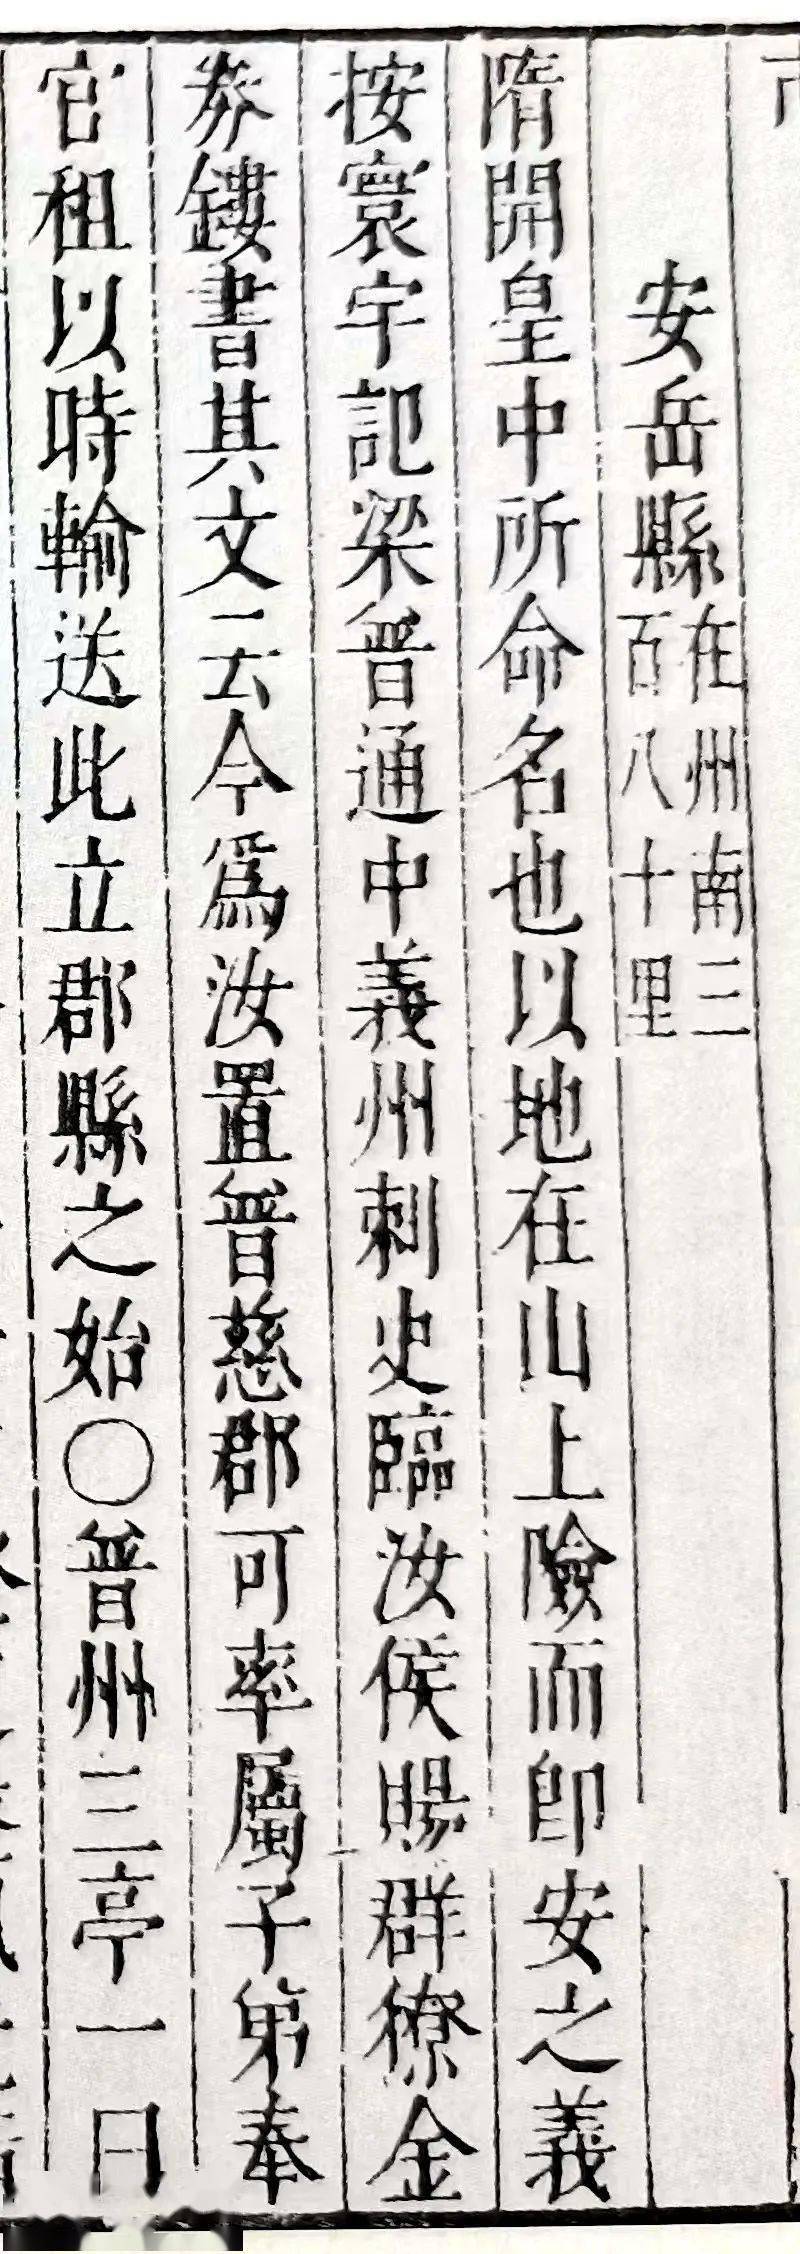 安岳縣在州南三百八十里
隋開皇中所命名也以地在山上險而即安之義
按寰宇記梁普通中義州刺史臨汝侯賜群獠金
券鏤書其文云今為汝置普慈郡可率屬子弟奉
官租以時輸送此立郡縣之始〇普州三亭一曰